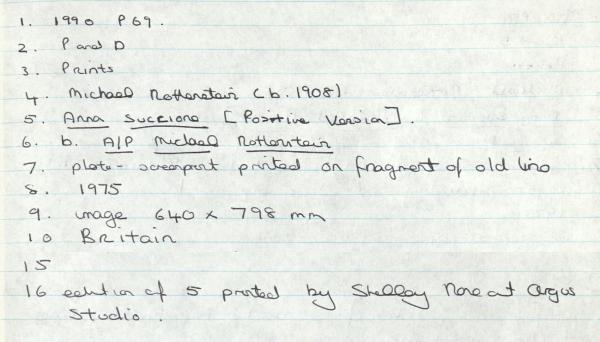 1. 1990 P69.
2. P and D
3. Prints
4. Michael Rothenstein (b. 1908)
5. Anna Succiona [Positive Version].
6. b. A/P Michael Rothenstein
7. plate - screenprint printed on fragment of old lino
8. 1975
9. image 640 x 798 mm
10 Britain
15
16 edition of 5 printed by Shelley Rose at Argus
Studio.